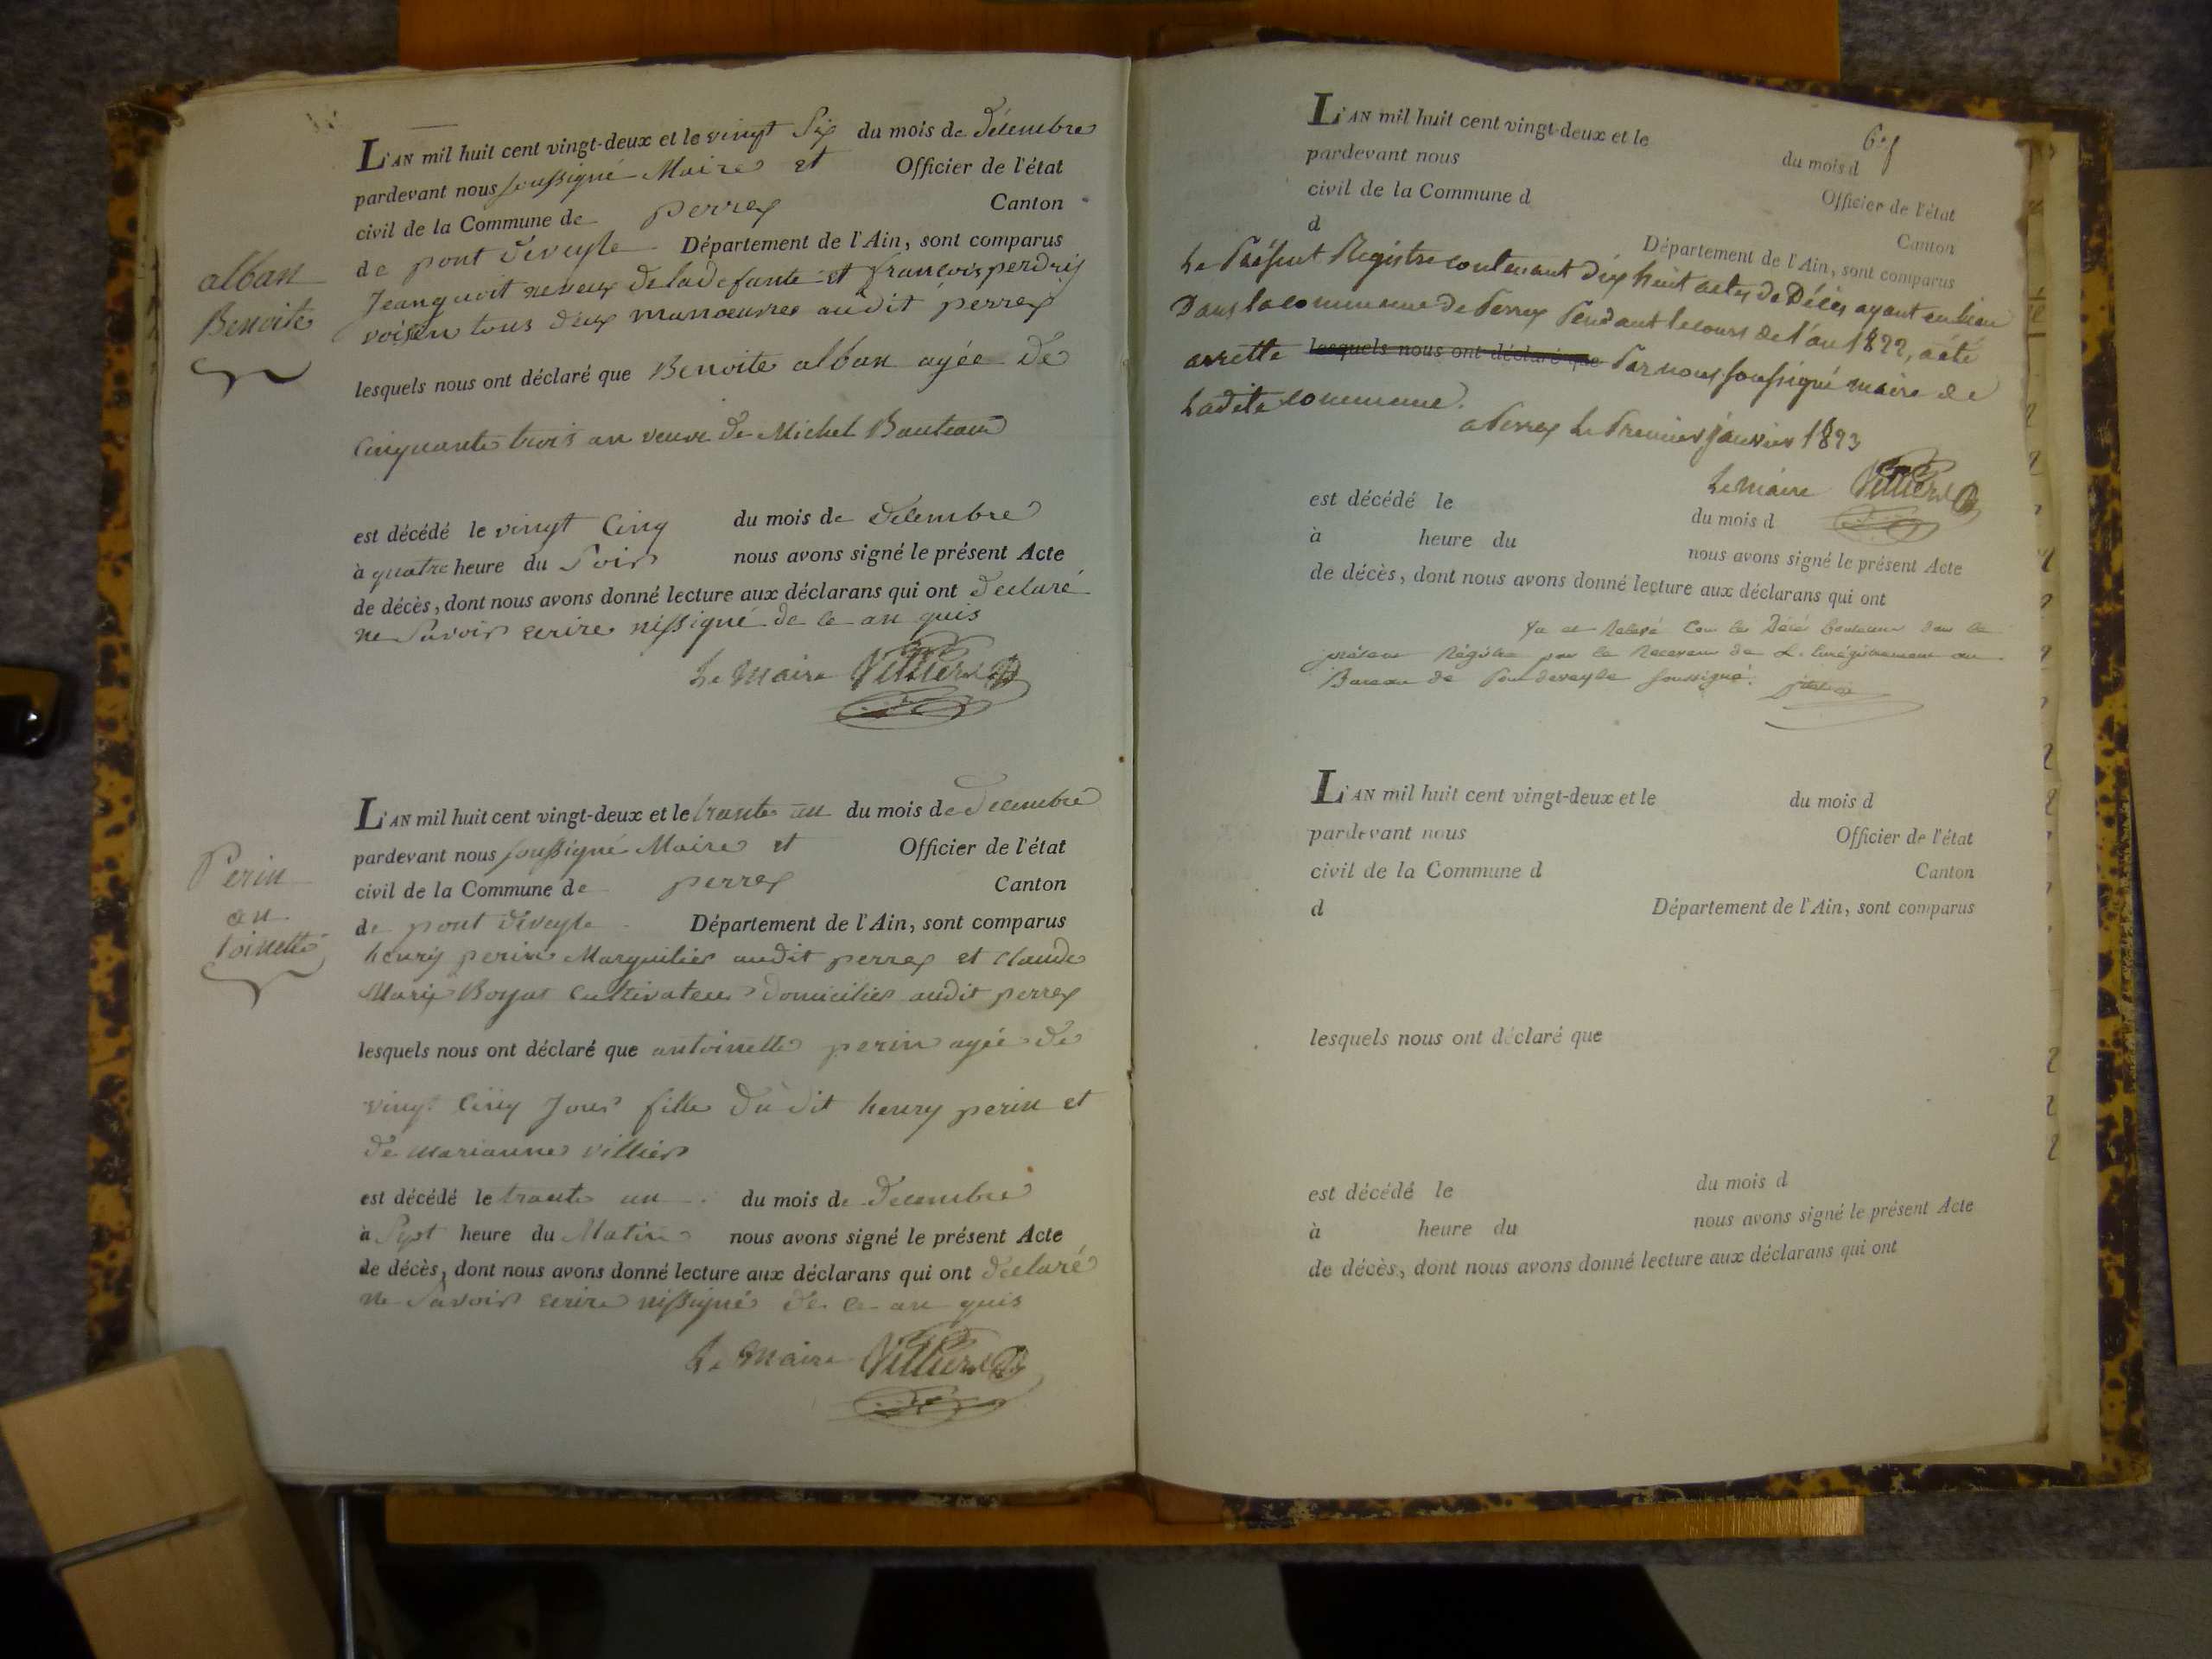 alban
Benoite
L'AN mil huit cent vingt-deux et le vingt Six du mois de décembre
pardevant nous soussigné Maire et Officier de l'état
civil de la Commune de perrex Canton
de pont deveyle Département de l'Ain, sont comparus
Jean guoit neveux de la defante et francois perdrix
voisin tous deux manoeuvres audit perrex
lesquels nous ont déclaré que Benoite alban agée de
Cinquante trois an veuve de Michel Bauteau
est décédé le vingt Cinq du mois de décembre
à quatre heure du Soir nous avons signé le présent Acte
de décès, dont nous avons donné lecture aux déclarans qui ont declaré
ne Savoir ecrire nissigné de ce an quis
Le Maire Villier
Perin
an
toinette
L'AN mil huit cent vingt-deux et le trante un du mois de decembre
pardevant nous soussigné Maire et Officier de l'état
civil de la Commune de perrex Canton
de pont deveyle Département de l'Ain, sont comparus
henry perin Marguilier audit perrex et Claude
Marie Boyat Cultivateur domicilier audit perrex
lesquels nous ont déclaré que antoinette perin agée de
vingt Cinq Jour fille du dit henry perin et
de marianne villier
est décédé le trante un du mois de decembre
à Sept heure du Matin nous avons signé le présent Acte
de décès, dont nous avons donné lecture aux déclarans qui ont declaré
ne Savoir ecrire nissigné de ce an quis
Le Maire Villier
L'AN mil huit cent vingt-deux et le du mois d
pardevant nous Officier de l'état
civil de la Commune d Canton
d Département de l'Ain, sont comparus
Le Présent Registre contenant dix huit actes de Décès ayant eu lieu
Dans la commune de Perrex Pendant le cours de l'an 1822, a été
arretté lesquels nous ont déclaré que Par nous soussigné maire de
Ladite commune.
a Perrex Le Premier janvier 1823
Le Maire Villier
est décédé le du mois d
à heure du nous avons signé le présent Acte
de décès, dont nous avons donné lecture aux déclarans qui ont
Vu et Relevé les Décés Contenus dans le
présent Régistre par le Receveur de L'Enrégistrement au
Bureau de Pontdeveyle soussigné.
L'AN mil huit cent vingt-deux et le du mois d
pardevant nous Officier de l'état
civil de la Commune d Canton
d Département de l'Ain, sont comparus
lesquels nous ont déclaré que
est décédé le du mois d
à heure du nous avons signé le présent Acte
de décès, dont nous avons donné lecture aux déclarans qui ont